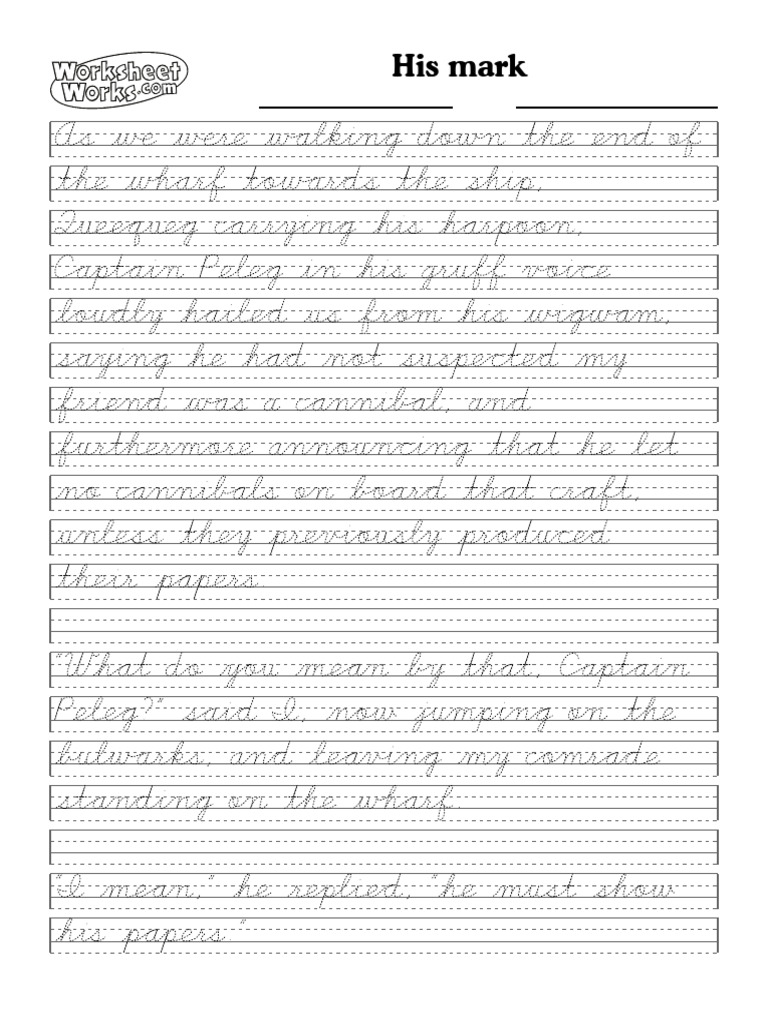 Worksheet
Works.com
His mark
As we were walking down the end of
the wharf towards the ship,
Queequeg carrying his harpoon,
Captain Peleg in his gruff voice
loudly hailed us from his wigwam,
saying he had not suspected my
friend was a cannibal, and
furthermore announcing that he let
no cannibals on board that craft,
unless they previously produced
their papers.
"What do you mean by that, Captain
Peleg?" said I, now jumping on the
bulwarks, and leaving my comrade
standing on the wharf.
"I mean," he replied, "he must show
his papers."